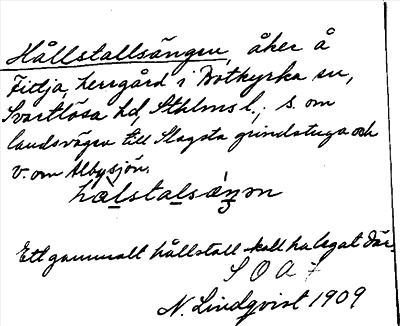 Hållstallsängen, åker å
Fittja, herrgård i Botkyrka sn,
Svartlösa hd, Sthlms l.; s. om
landsvägen till Slagsta grindstuga och
v. om Albysjön.
Ett gammalt hållstall skall ha legat där.
S O A
N. Lindqvist 1909